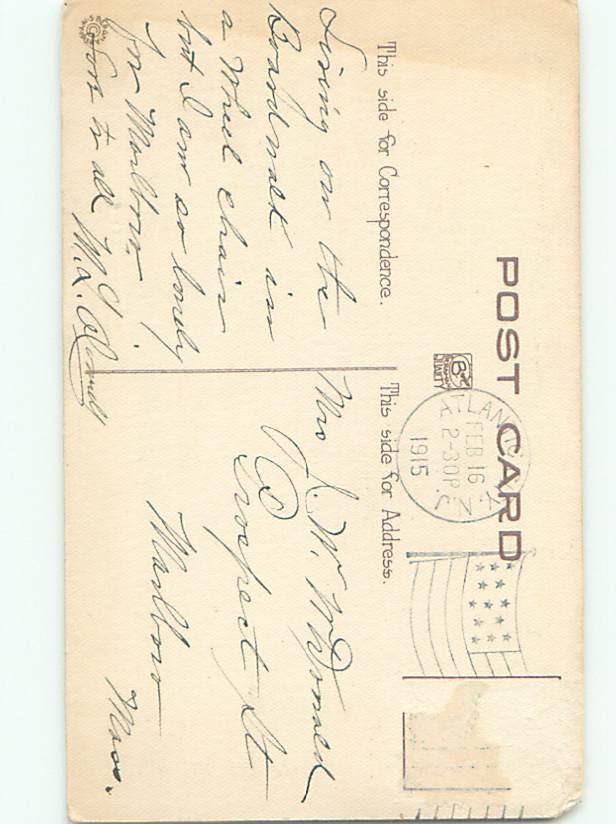 POST CARD
This side for Correspondence.
This side for Address.
ATLANTIC CITY
FEB 16
2-30P
1915
N.J.
Living on the
Boardwalk in
a Wheel chair
but I am so lonely
for Marlboro.
Love to all M.L.
Mrs J. W. McDonald
Prospect St
Marlboro
Mass.